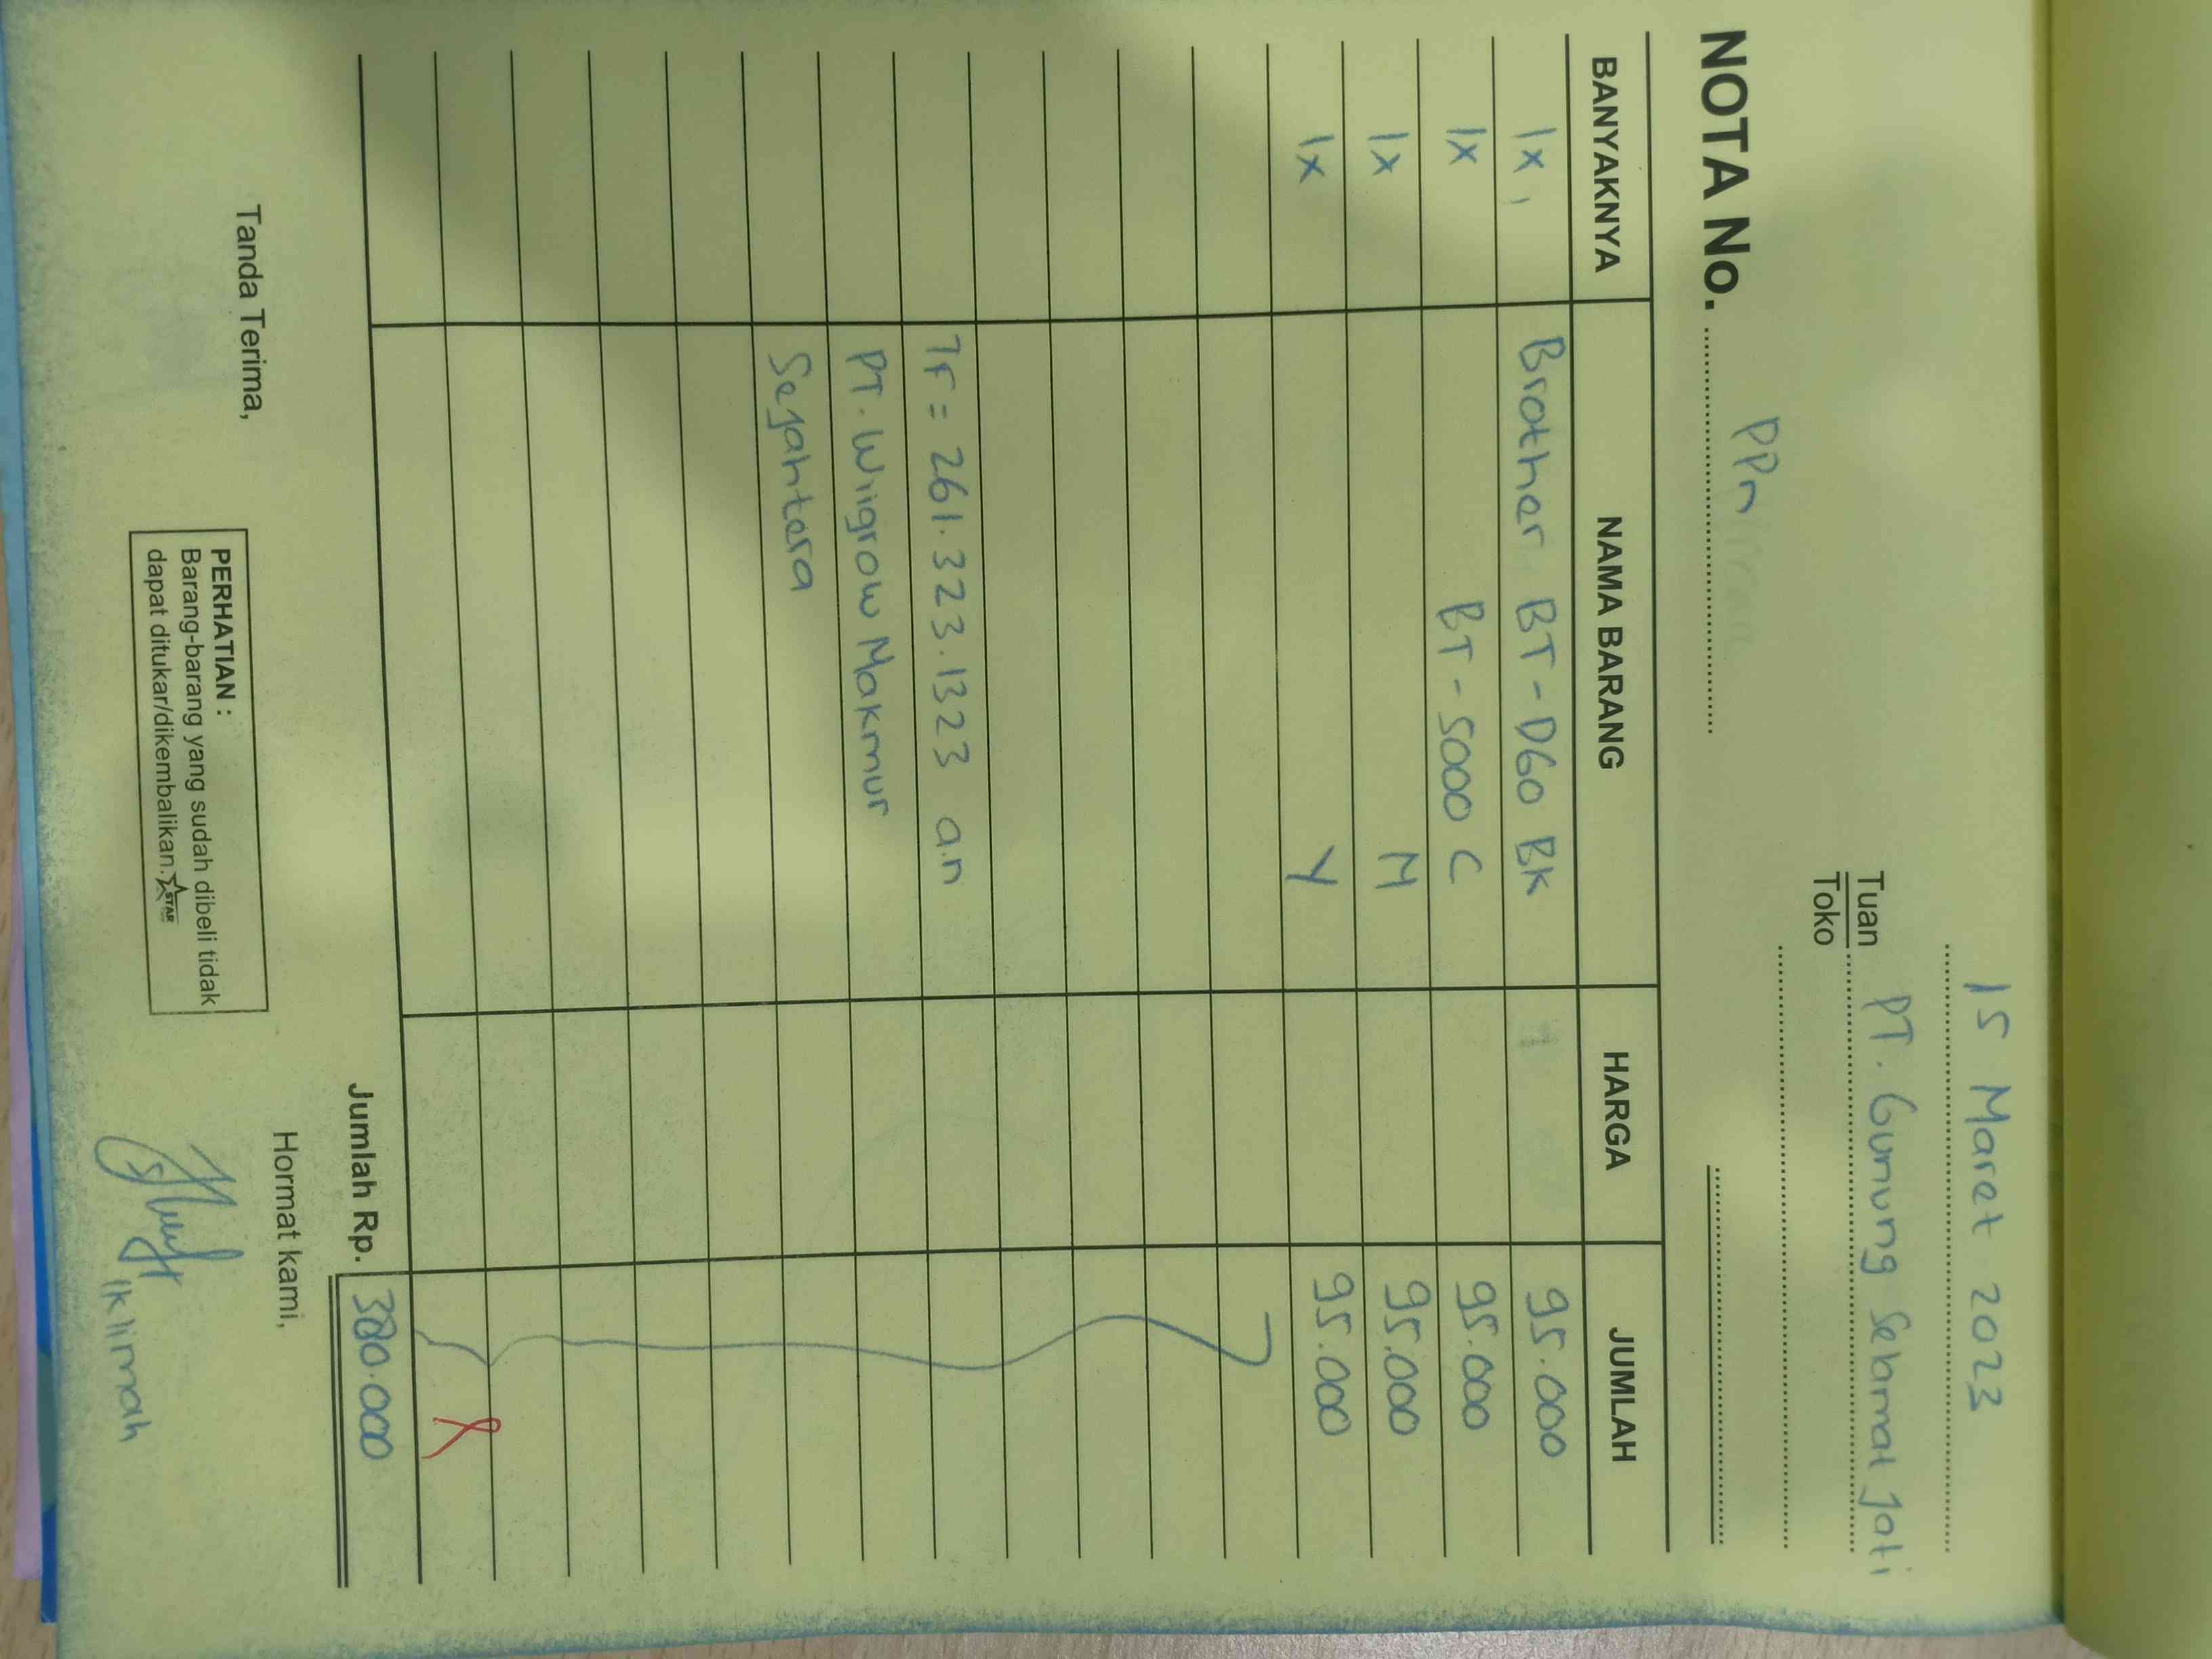 15 Maret 2023
Tuan PT. Gunung Selamat Jati
Toko
NOTA No. PPn
BANYAKNYA NAMA BARANG HARGA JUMLAH
1x Brother BT-D60 BK 95.000
1x BT-5000 C 95.000
1x M 95.000
1x Y 95.000
TF = 261.323.1323 a.n
PT. Wrigrow Makmur
Sejahtera
Jumlah Rp. 380.000
Tanda Terima, Hormat kami,
PERHATIAN :
Barang-barang yang sudah dibeli tidak
dapat ditukar/dikembalikan.
STAR
Iklimah